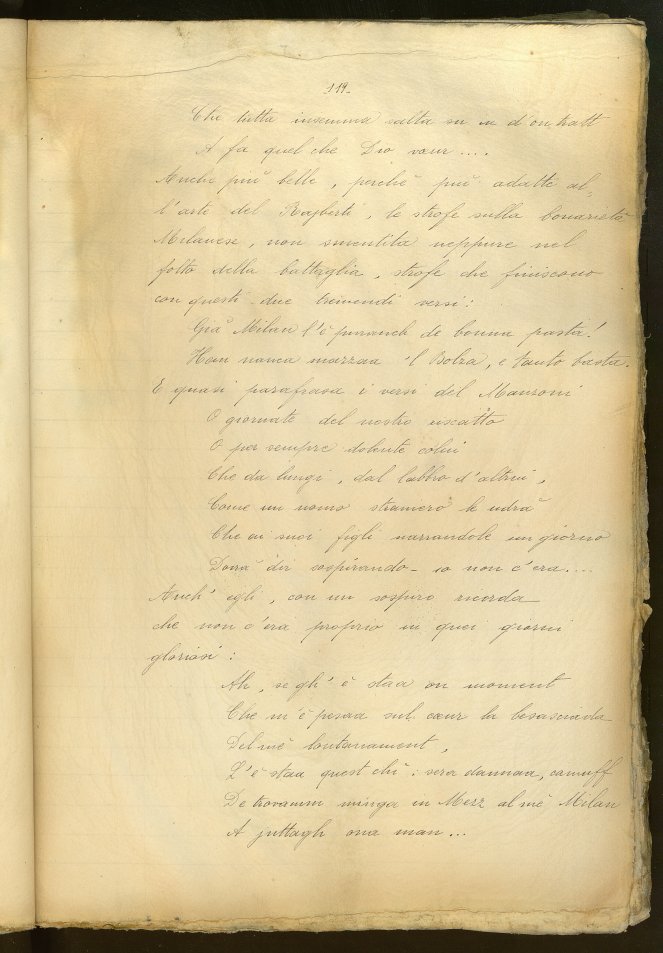 119.
Che tutta insemma salta su in d'on tratt
A fa quel che Dio vœur ....
Anche più belle, perchè più adatte al-
l'arte del Rajberti, le strofe sulla bonarietà
Milanese, non smentita neppure nel
folto della battaglia, strofe che finiscono
con questi due tremendi versi:
Già Milan l'è puranch de bonna pasta!
Han nanca mazzaa 'l Bolza, e tanto basta.
E quasi parafrasa i versi del Manzoni
O giornate del nostro riscatto
O per sempre dolente colui
Che da lungi, dal labbro d'altrui,
Come un uomo straniero le udrà
Che ai suoi figli narrandole un giorno
Dovrà dir sospirando - io non c'era....
Anch' egli, con un sospiro ricorda
che non c'era proprio in quei giorni
gloriosi:
Ah, se gh' è staa on moment
Che m'è pesaa sul cœur la
Del mè lontanament,
L'è staa quest chì: vera dannaa, camuff
De trovamm minga in Mezz al mè Milan
A juttagh ona man...